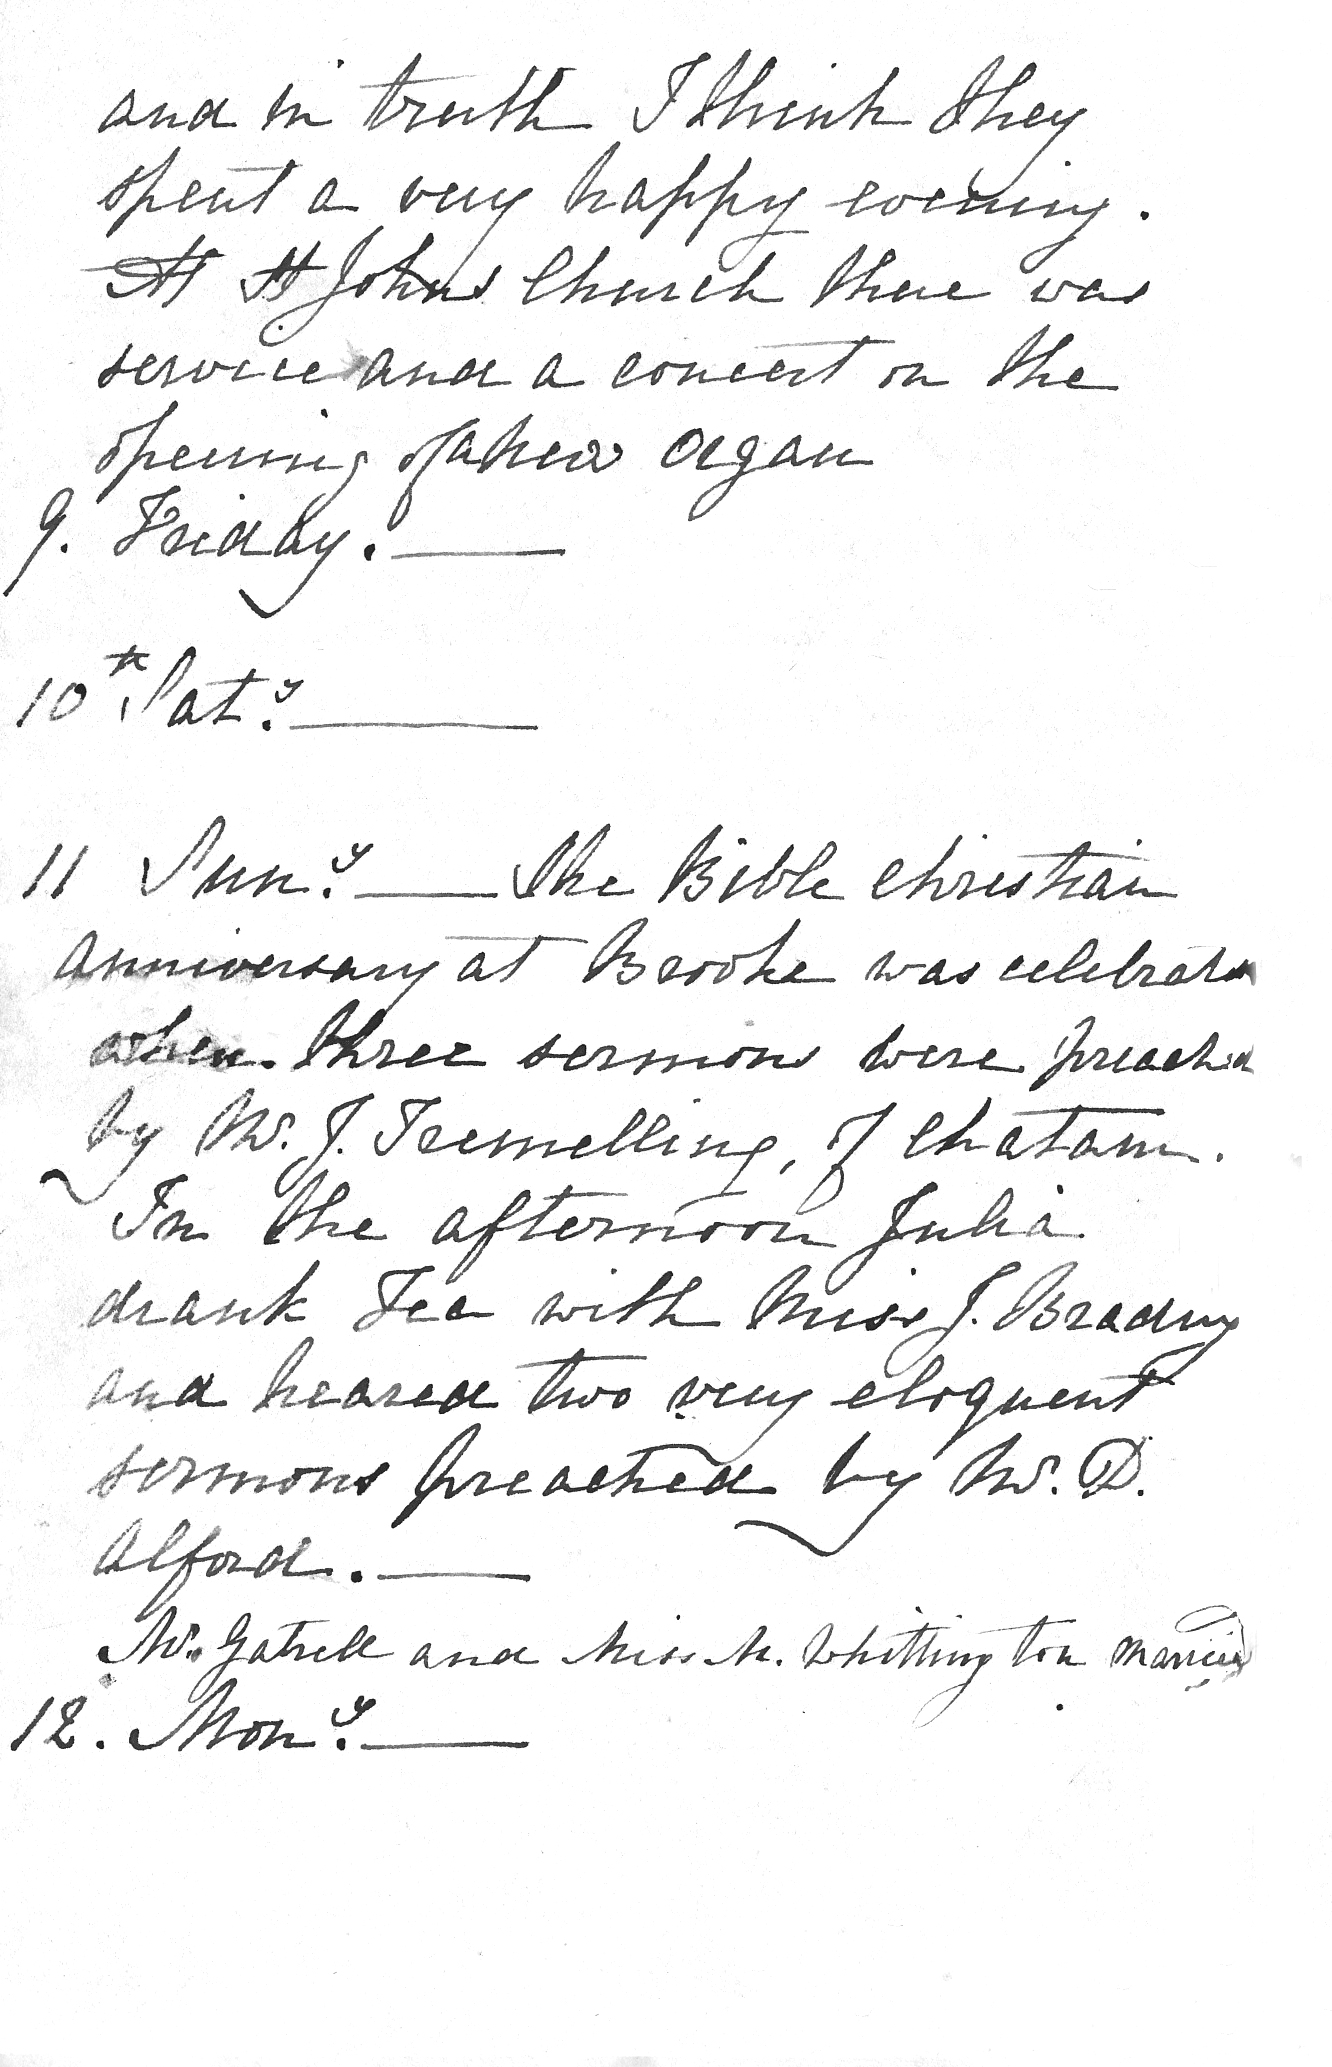 and in truth I think they
spent a very happy evening.
At St Johns Church there was
service and a concert on the
opening of a new Organ
9. Friday. —
10th Saty. —
11 Suny. — The Bible Christian
anniversary at Brooke was celebrated
when three sermons were preached
by Mr. J. Tremelling, of Chatam.
In the afternoon Julia
drank Tea with Miss J. Bradny
and heared two very eloquent
sermons preached by Mr. D.
Alford. —
Mr. Gatrell and Miss M. Whittington married
12. Mony. —